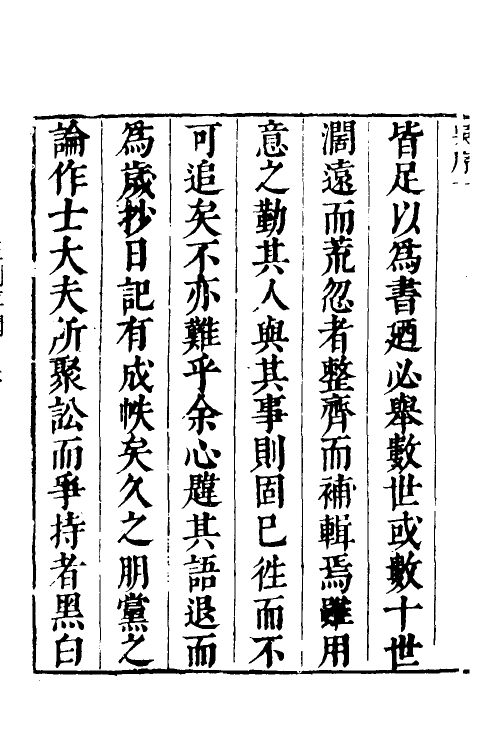 皆足以爲書廼必舉數世或數十世
濶遠而荒忽者整齊而補輯焉雖用
意之勤其人與其事則固已徃而不
可追矣不亦難乎余心韙其語退而
爲歲抄日記有成帙矣久之朋黨之
論作士大夫所聚訟而爭持者黑白